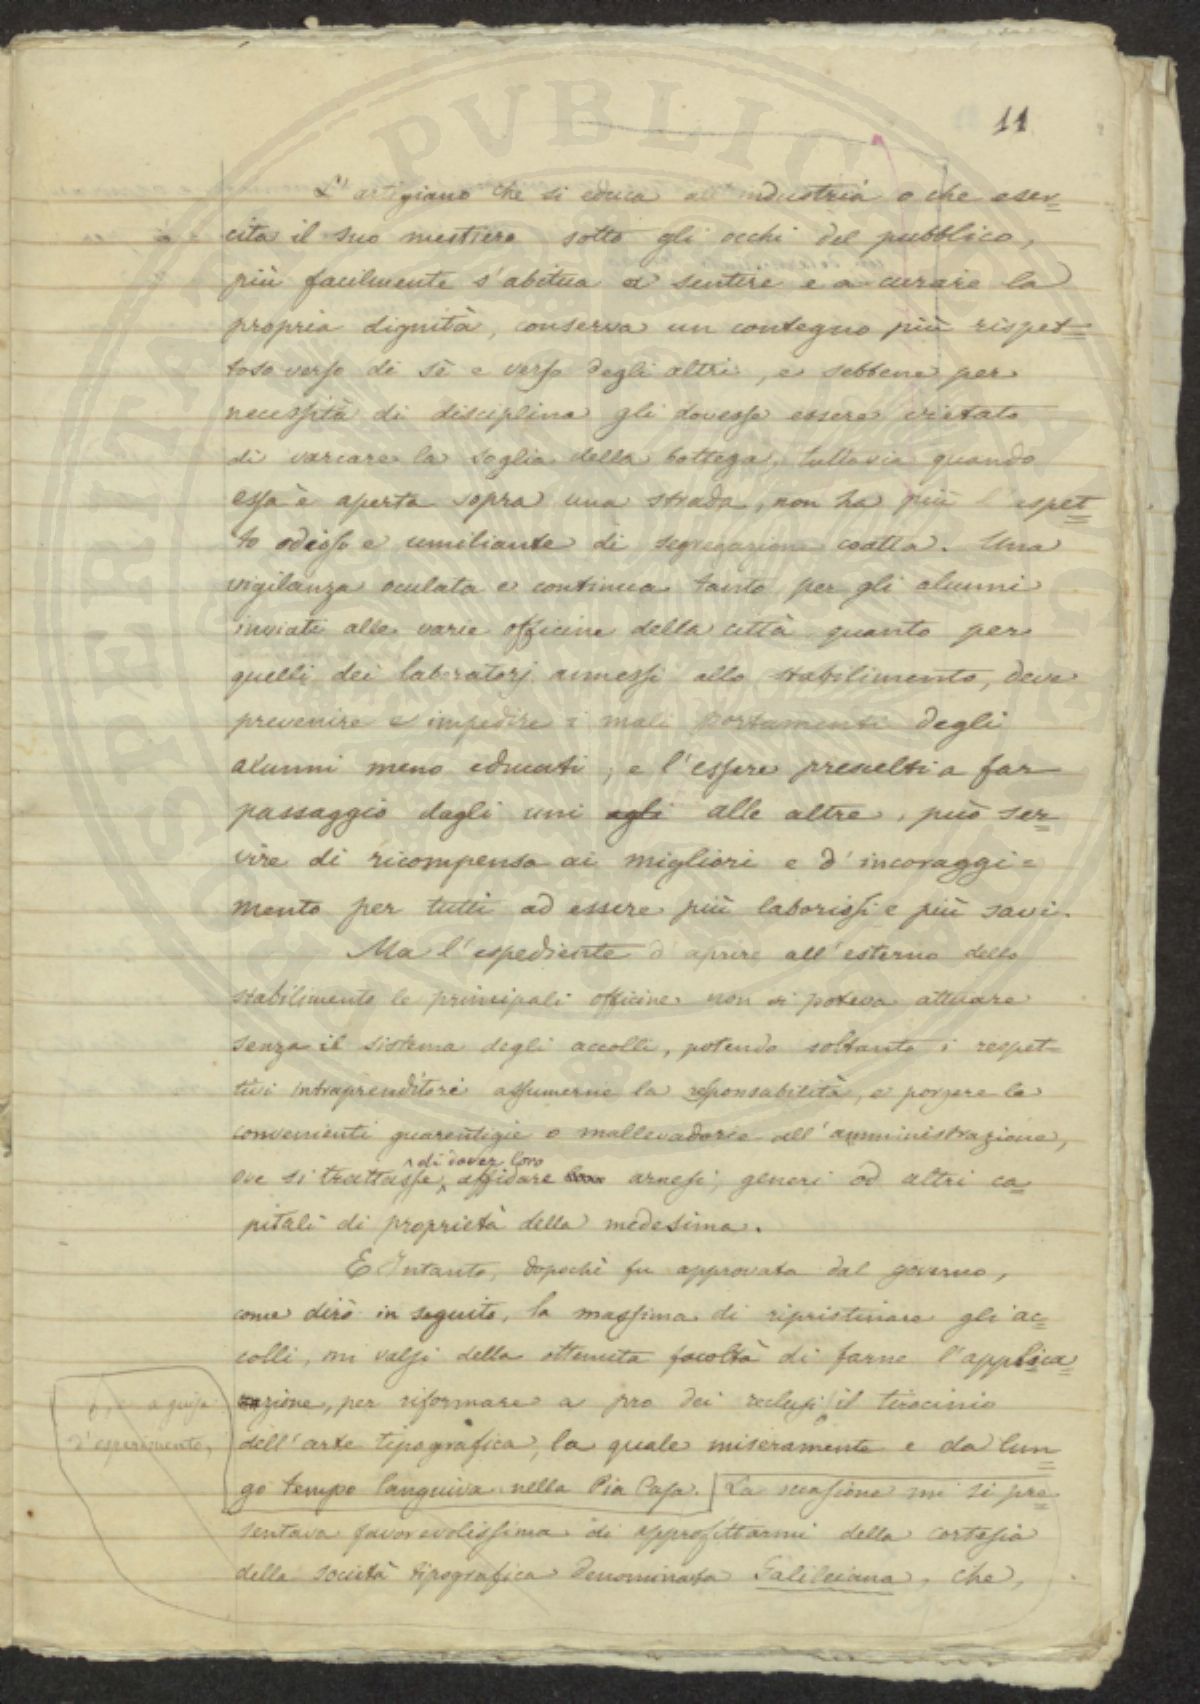 11
L'artigiano che si educa all'industria o che eser=
cita il suo mestiere sotto gli occhi del pubblico,
più facilmente s'abitua a sentire e a curare la
propria dignità, conserva un contegno più rispet=
toso verso di sè e verso degli altri, e sebbene per
necessità di disciplina gli dovesse essere vietato
di varcare la soglia della bottega, tuttavia quando
essa è aperta sopra una strada, non ha più l'aspet=
to odioso e umiliante di segregazione coatta. Una
vigilanza oculata e continua tanto per gli alunni
inviati alle varie officine della città quanto per
quelli dei laboratorj annessi allo stabilimento, deve
prevenire e impedire i mali portamenti degli
alunni meno educati, e l'essere prescelti a far
passaggio dagli uni agli alle altre, può ser=
vire di ricompensa ai migliori e d'incoraggi=
mento per tutti ad essere più laboriosi e più savi.
Ma l'espediente d'aprire all'esterno dello
stabilimento le principali officine non si poteva attuare
senza il sistema degli accolli, potendo soltanto i respet=
tivi intraprenditori assumerne la responsabilità, e porgere le
convenienti guarentigie o mallevadorie all'amministrazione,
di dover loro
ove si trattasse affidare loro arnesi, generi od altri ca=
pitali di proprietà della medesima.
E Intanto, dopochè fu approvata dal governo,
come dirò in seguito, la massima di ripristinare gli ac=
colli, mi valsi della ottenuta facoltà di farne l'applica=
zione, per riformare a pro dei reclusi il tirocinio
a guisa
d'esperimento,
dell'arte tipografica, la quale miseramente e da lun=
go tempo languiva nella Pia Casa. La occasione mi si pre=
sentava favorevolissima di approfittarmi della cortesia
della società tipografica denominata Galileiana, che,